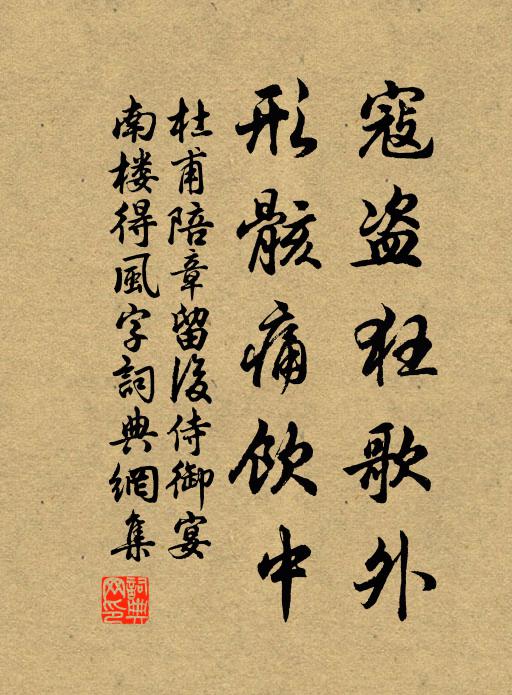 寇盗狂歌外
形骸痛饮中
杜甫陪章留後侍御宴
南楼得風字詞典網集
詞典网印